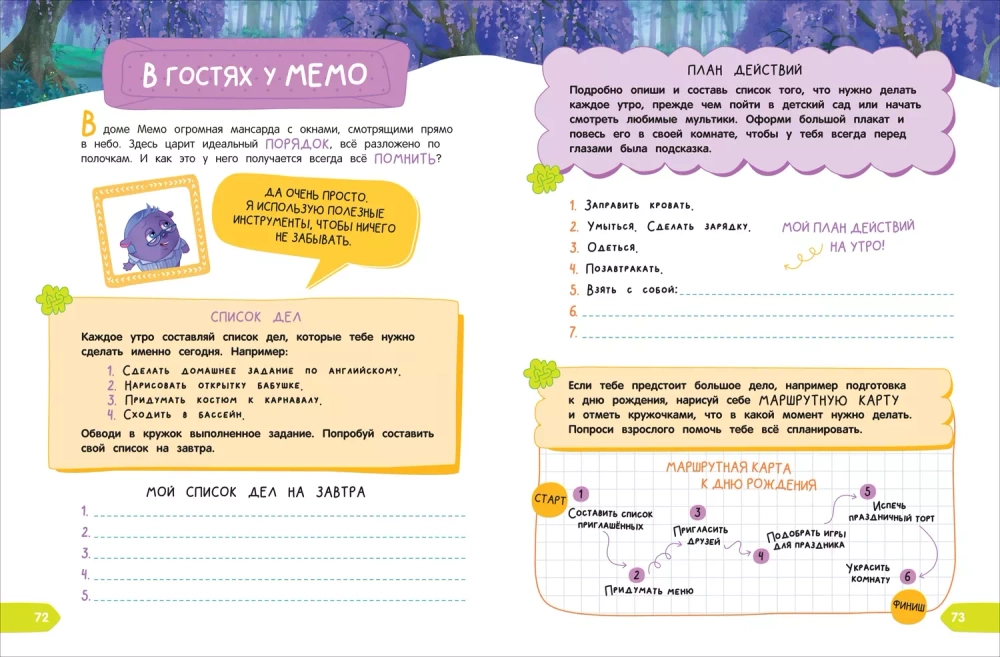 В ГОСТЯХ У МЕМО
В доме Мемо огромная мансарда с окнами, смотрящими прямо
в небо. Здесь царит идеальный ПОРЯДОК, всё разложено по
полочкам. И как это у него получается всегда всё ПОМНИТЬ?
ДА ОЧЕНЬ ПРОСТО.
Я ИСПОЛЬЗУЮ ПОЛЕЗНЫЕ
ИНСТРУМЕНТЫ, ЧТОБЫ НИЧЕГО
НЕ ЗАБЫВАТЬ.
СПИСОК ДЕЛ
Каждое утро составляй список дел, которые тебе нужно
сделать именно сегодня. Например:
1. Сделать домашнее задание по английскому.
2. Нарисовать открытку бабушке.
3. Придумать костюм к карнавалу.
4. Сходить в бассейн.
Обводи в кружок выполненное задание. Попробуй составить
свой список на завтра.
МОЙ СПИСОК ДЕЛ НА ЗАВТРА
1.
2.
3.
4.
5.
72
ПЛАН ДЕЙСТВИЙ
Подробно опиши и составь список того, что нужно делать
каждое утро, прежде чем пойти в детский сад или начать
смотреть любимые мультики. Оформи большой плакат и
повесь его в своей комнате, чтобы у тебя всегда перед
глазами была подсказка.
1. Заправить кровать.
2. Умыться. Сделать зарядку.
3. Одеться.
4. Позавтракать.
5. Взять с собой:
6.
7.
МОЙ ПЛАН ДЕЙСТВИЙ
НА УТРО!
Если тебе предстоит большое дело, например подготовка
к дню рождения, нарисуй себе МАРШРУТНУЮ КАРТУ
и отметь кружочками, что в какой момент нужно делать.
Попроси взрослого помочь тебе всё спланировать.
МАРШРУТНАЯ КАРТА
К ДНЮ РОЖДЕНИЯ
СТАРТ
1
Составить список
приглашённых
2
Придумать меню
3
Пригласить
друзей
4
Подобрать игры
для праздника
5
Испечь
праздничный торт
Украсить
комнату
6
ФИНИШ
73